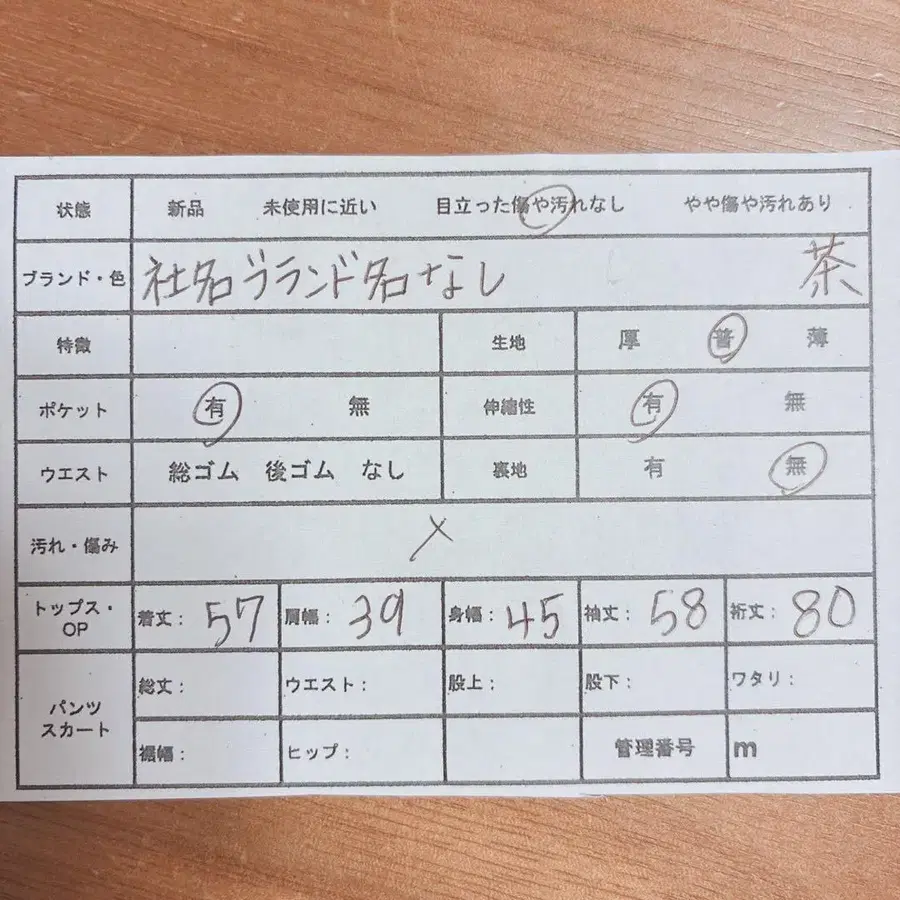 状態 新品 未使用に近い 目立った傷や汚れなし やや傷や汚れあり
ブランド・色 社名ブランド名なし 茶
特徴 生地 厚 普 薄
ポケット 有 無 伸縮性 有 無
ウエスト 総ゴム 後ゴム なし 裏地 有 無
汚れ・傷み ×
トップス・OP 着丈: 57 肩幅: 39 身幅: 45 袖丈: 58 裄丈: 80
パンツ スカート 総丈: ウエスト: 股上: 股下: ワタリ:
裾幅: ヒップ: 管理番号 m